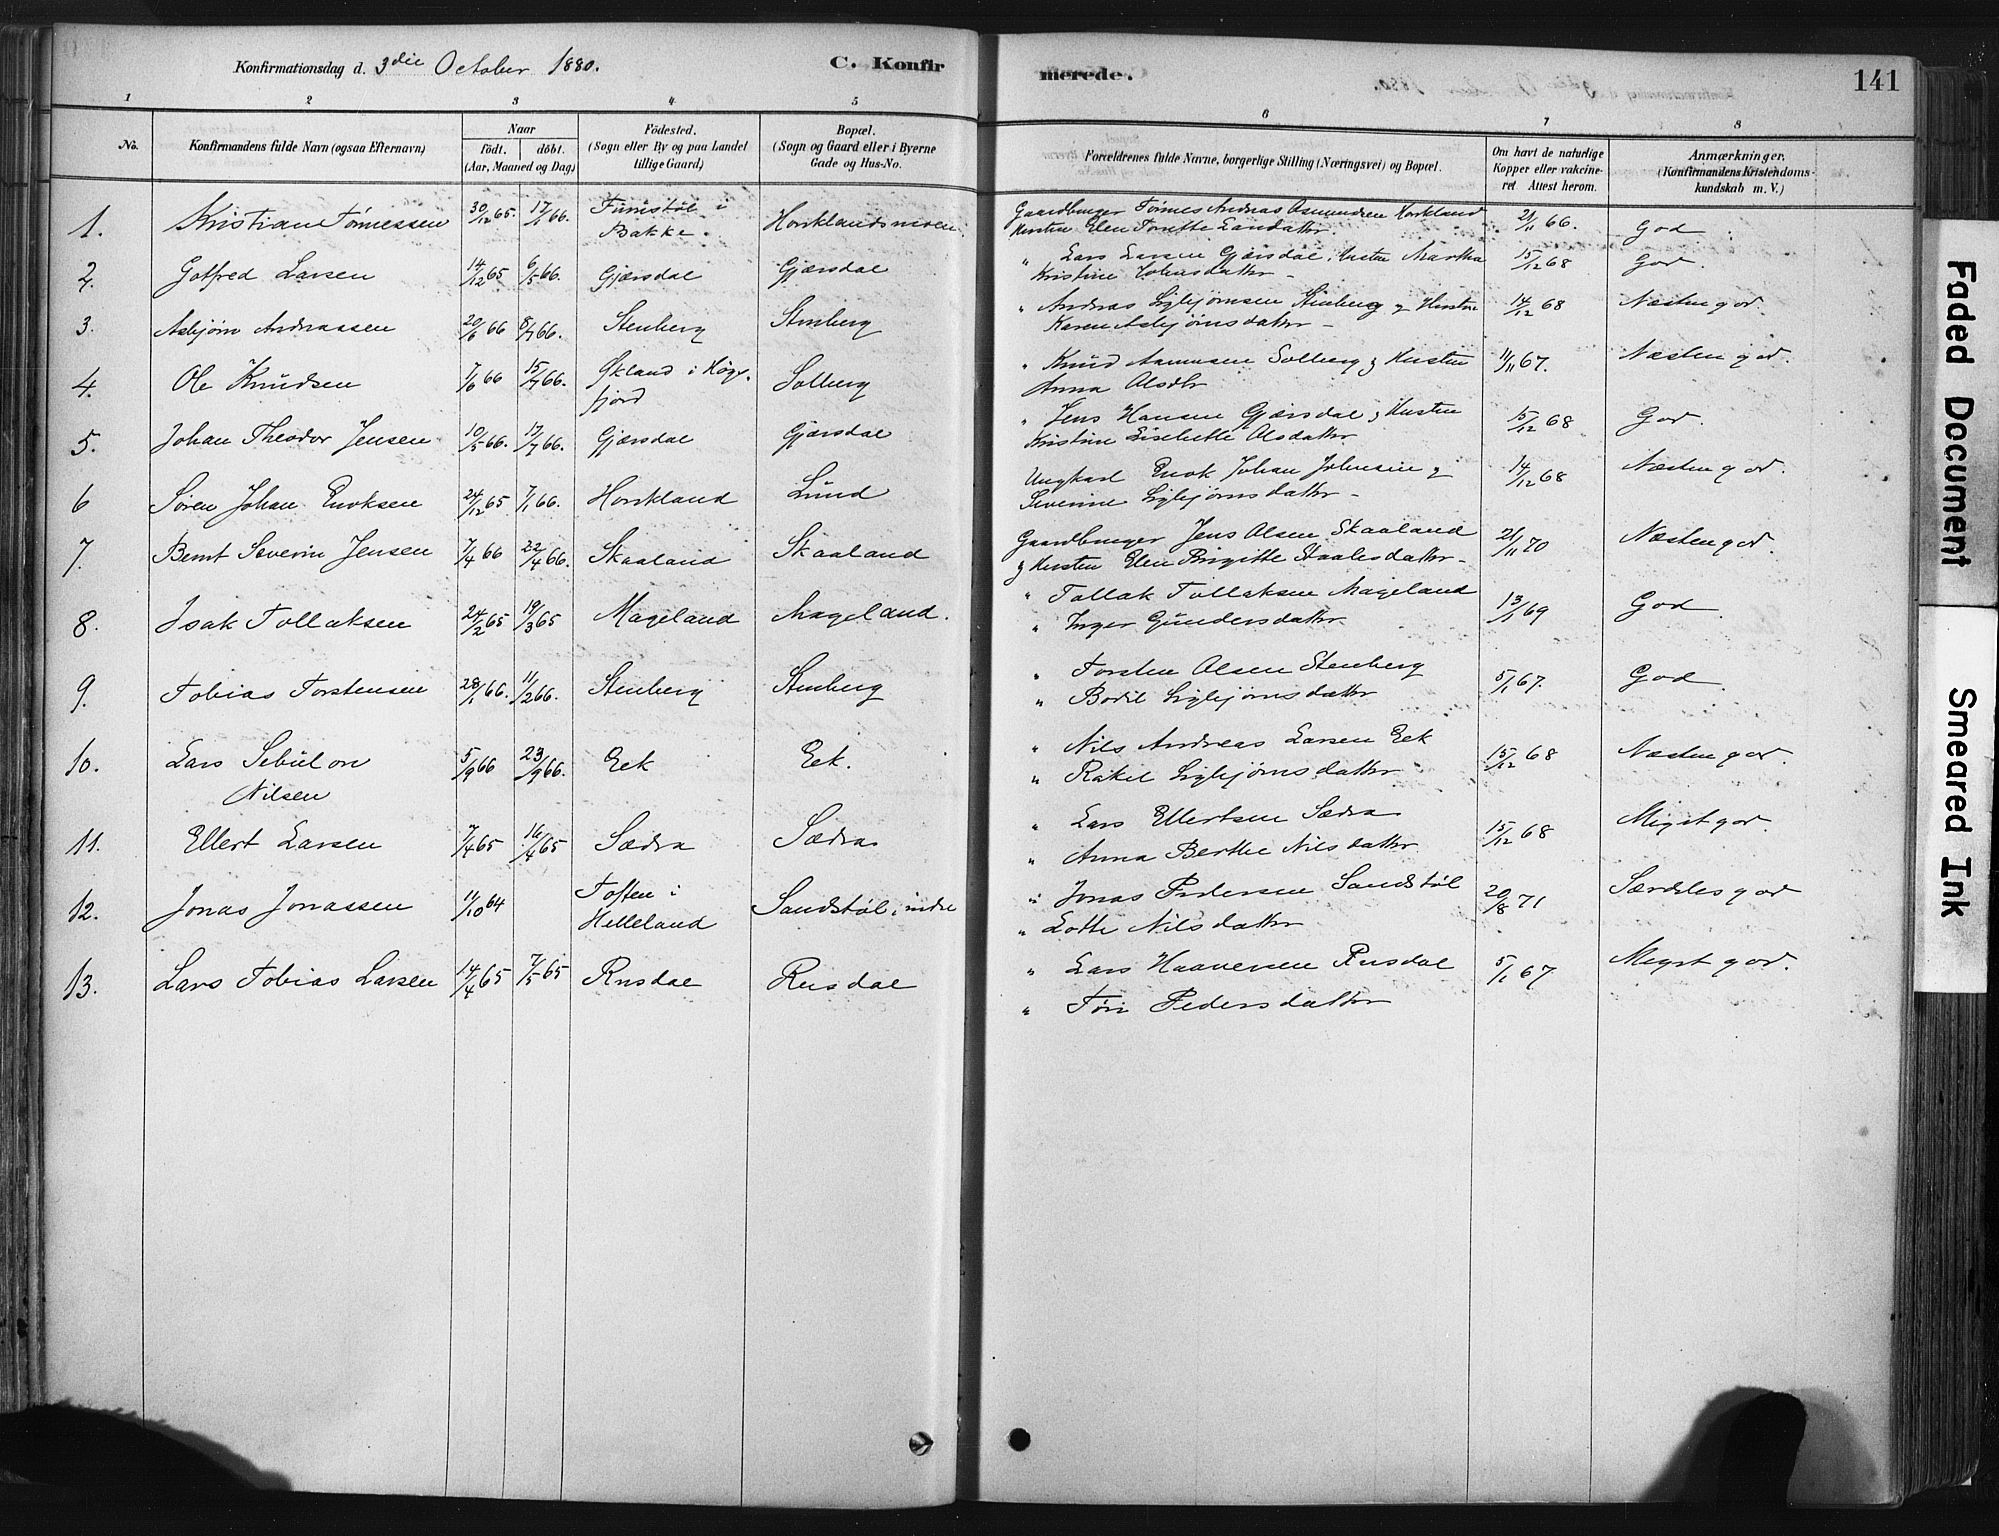 Konfirmationsdag d. 3die October 1880.
C. Konfir
merede.
141
1 2 3 4 5 6 7 8
No.
Konfirmandens fulde Navn (ogsaa Efternavn)
Naar
födt. döbt.
(Aar, Maaned og Dag)
Födested.
(Sogn eller By og paa Landet
tillige Gaard)
Bopæl.
(Sogn og Gaard eller i Byerne
Gade og Hus-No.
Forældrenes fulde Navne, borgerlige Stilling (Næringsvei) og Bopæl.
Om havt de naturlige
Kopper eller vakcine-
ret Attest herom.
Anmærkninger.
(Konfirmandens Kristendoms-
kundskab m. V.)
1. Kristian Tønnessen 30/12 65. 17/1 66. i Bakke.
Gaardbruger Tønnes Andreas Osmundsen Horskland 21/11 66. God
Hustru Elen Torette
2. Gotfred Larsen 14/12 65 6/5 66. Gjærsdal Gjærsdal
" Lars Larsen Gjærsdal, Hustru Martha 15/12 68 God.
Kristine
3. Asbjørn Andreassen 20/6 66 8/7 66. Stenberg Stenberg
" Andreas Sigbjørnsen Stenberg og Hustru 14/12 68 Næsten god.
Karen Asbjørnsdatter
4. Ole Knudsen 7/6 66 15/7 66. Økland i Høgsfjord Solberg
" Knud Solberg & Hustru 11/11 67. Næsten god.
Anna Olsdtr
5. Johan Theodor Jensen 10/5 66. 17/7 66. Gjærsdal Gjærsdal
" Jens Hansen Gjærsdal & Hustru 15/12 68 God.
Kristine Lisebette Olsdatter
6 Søren Johan Enoksen 24/12 65. 7/1 66. Horskland Lund
Ungkarl Enok Johan Johnsen & 14/12 68 Næsten god.
Severine Sigbjørnsdatter
7. Bernt Severin Jensen 7/4 66 22/4 66. Skaaland Skaaland
Gaardbruger Jens Olsen Skaaland 21/11 70 Næsten god.
& Hustru Elen Birgitte Staalesdatter
8. Isak Tollaksen 24/2 65 19/3 65 Mageland Mageland.
" Tollak Tollaksen Mageland 13/1 69 God.
" Inger Gundersdatter
9. Tobias Torstensen 28/1 66. 11/2 66. Stenberg Stenberg
" Torsten Olsen Stenberg 5/1 67. God.
" Bodil Sigbjørnsdatter
10. Lars Sebulon 5/9 66 23/9 66. Eek Eek.
Nilsen
" Nils Andreas Larsen Eek 15/12 68 Næsten god.
" Rakel Sigbjørnsdatter
11. Ellert Larsen 7/4 65 16/4 65 Sædra Sædra
" Lars Ellertsen Sædra 15/12 68 Meget god.
" Anna Berthe Nilsdatter
12. Jonas Jonassen 11/10 64 Toften i Helleland Sandstøl, indre
" Jonas Pedersen Sandstøl 20/8 71 Særdeles god
" Lotte Nilsdatter
13. Lars Tobias Larsen 14/4 65 7/5 65 Rusdal Rusdal
" Lars Haaversen Rusdal 5/1 67 Meget god.
" Tøri Pedersdatter
Faded Document
Smeared Ink